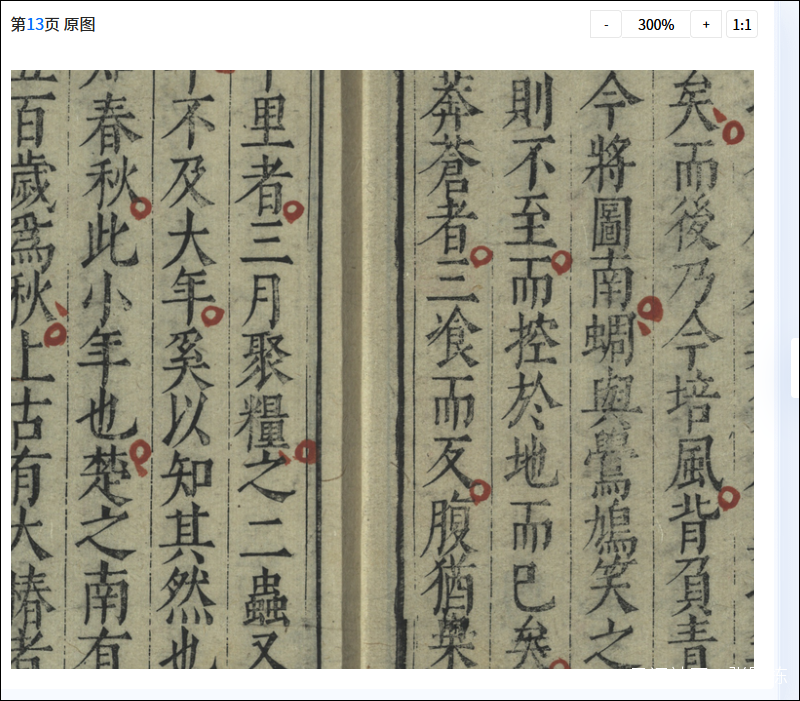 第13页 原图
- 300% + 1:1
矣而後乃今培風背負青
今將圖南蜩與鷽鳩笑之
則不至而控於地而已矣
莽蒼者三飡而反腹猶果
里者三月聚糧之二蟲又
不及大年奚以知其然也
春秋此小年也楚之南有
百歲爲秋上古有大椿者